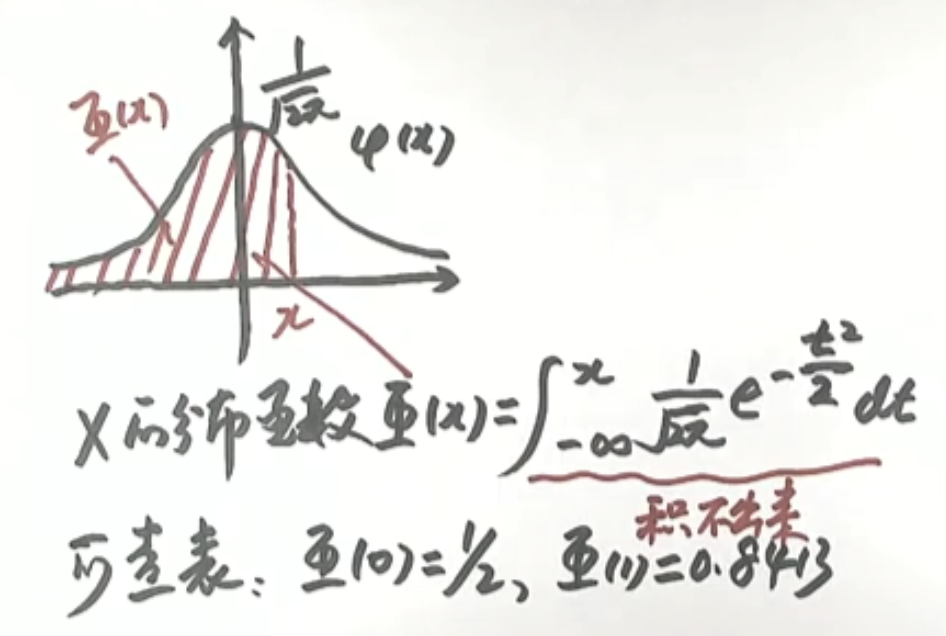 1/√2π
Φ(x)
φ(x)
x
X的分布函数Φ(x)=∫_{-∞}^{x} 1/√2π e^{-t²/2} dt
积不出来
可查表：Φ(0)=1/2、Φ(1)=0.8413